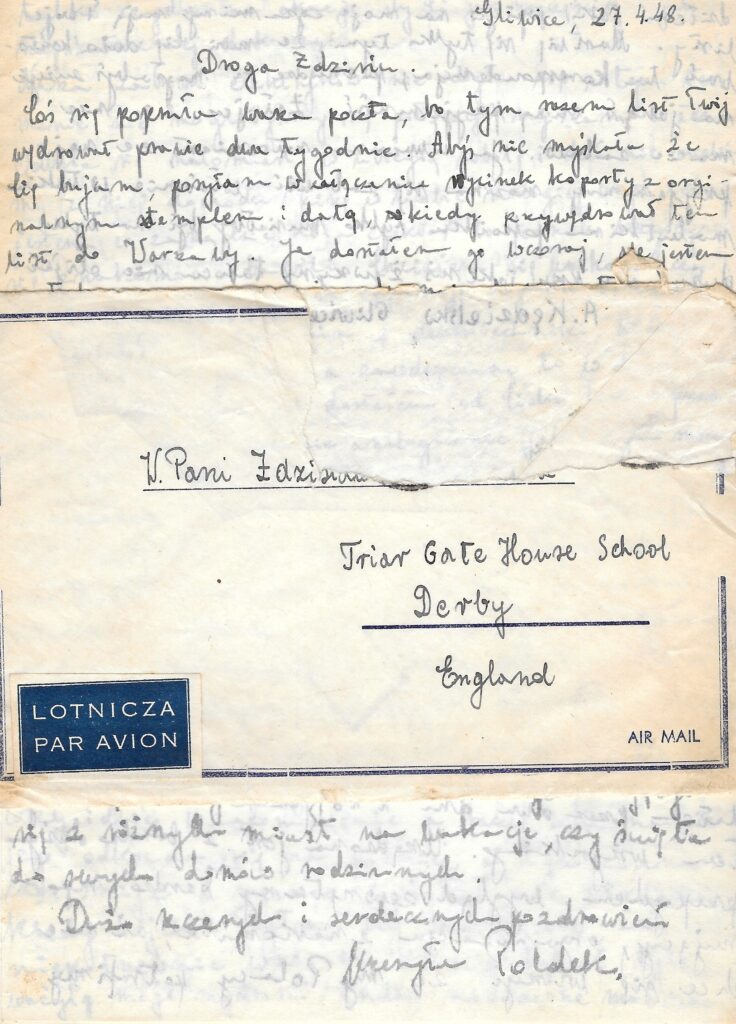 Gliwice, 27.4.48.
Droga Zdzisiu.
Coś się popsuła wasza poczta, bo tym razem list Twój
wędrował prawie dwa tygodnie. Abyś nie myślała że
Cię bujam, posyłam w załączeniu wycinek koperty z orgi-
nalnym stemplem i datą kiedy przywędrował ten
list do Warszawy. Ja dostałem go wczoraj,
W. Pani
Triar Gate House School
Derby
England
LOTNICZA
PAR AVION
AIR MAIL
się z różnych miast na wakacje, czy święta
do swych domów rodzinnych.
Dużo szczerych i serdecznych pozdrowień
Poldek.